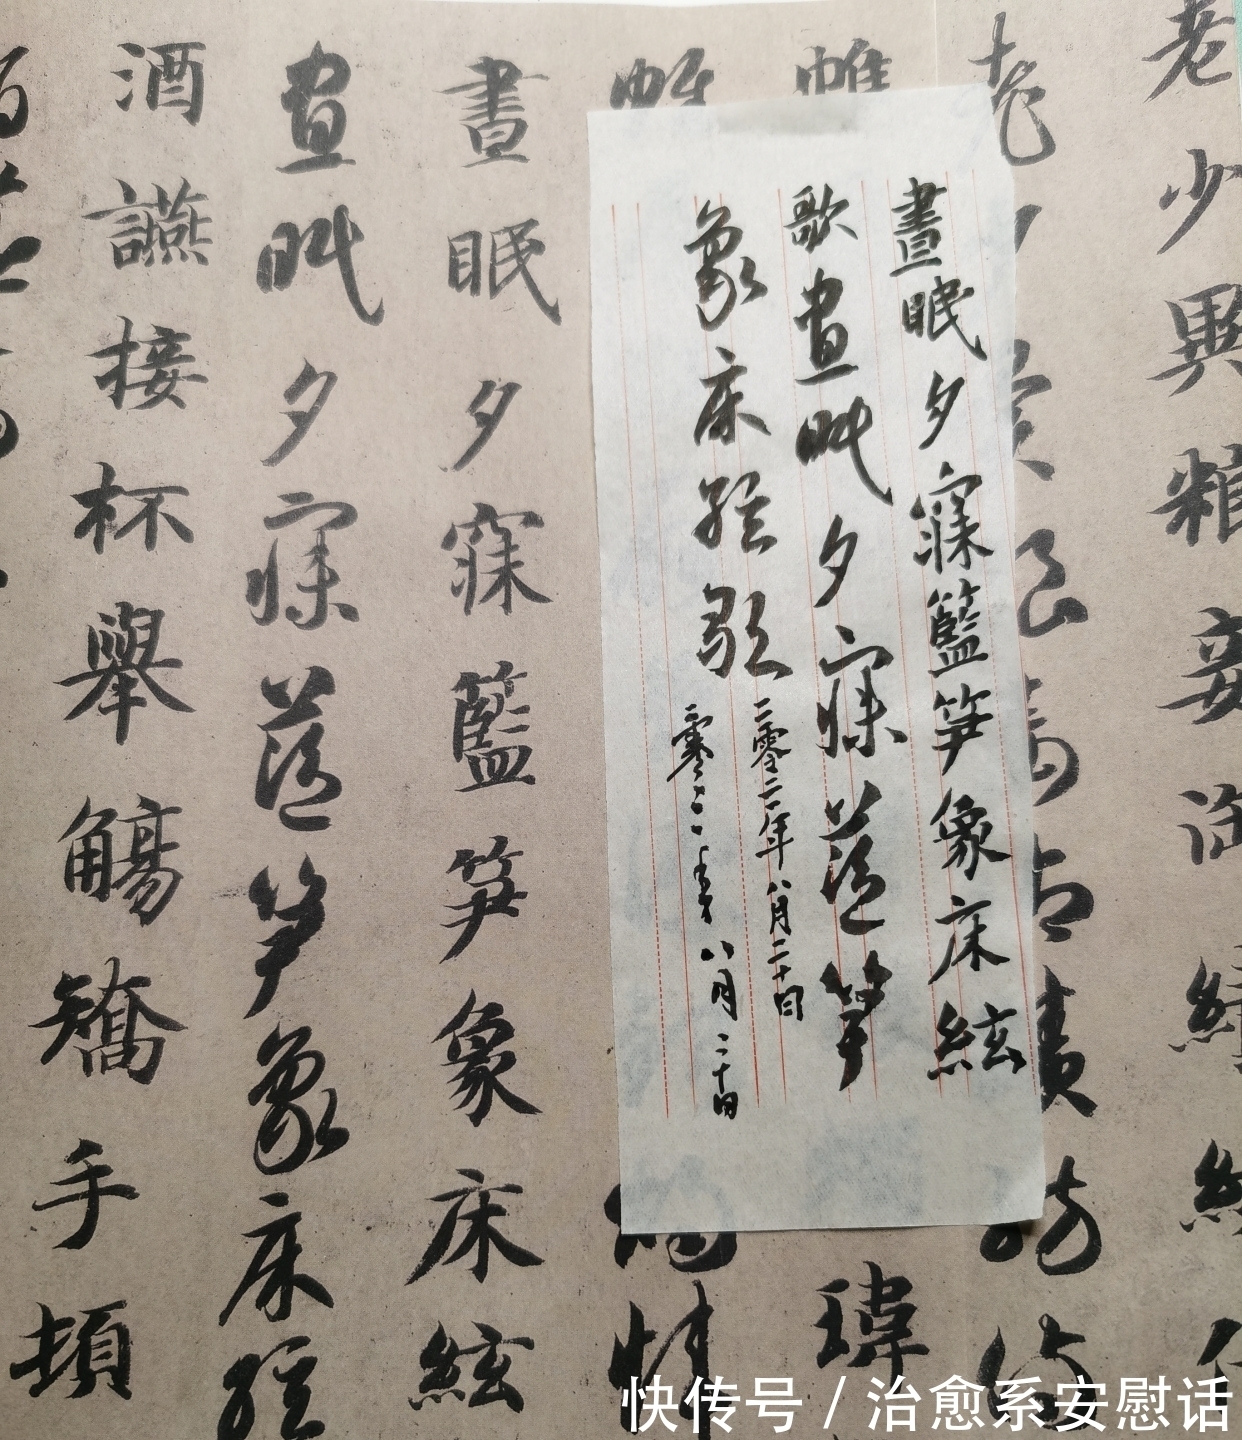 老少異粮妾御績紡
老
績紡侍
帷
瑋
帷
晝眠夕寐籃笋象床絃
歌晝眠夕寐藍笋
象床絃歌
二零二一年八月二十日
二零二一年八月二十日
晝眠夕寐籃笋象床絃
晝眠夕寐藍笋象床絃
酒讌接杯舉觴矯手頓
快传号 / 治愈系安慰话